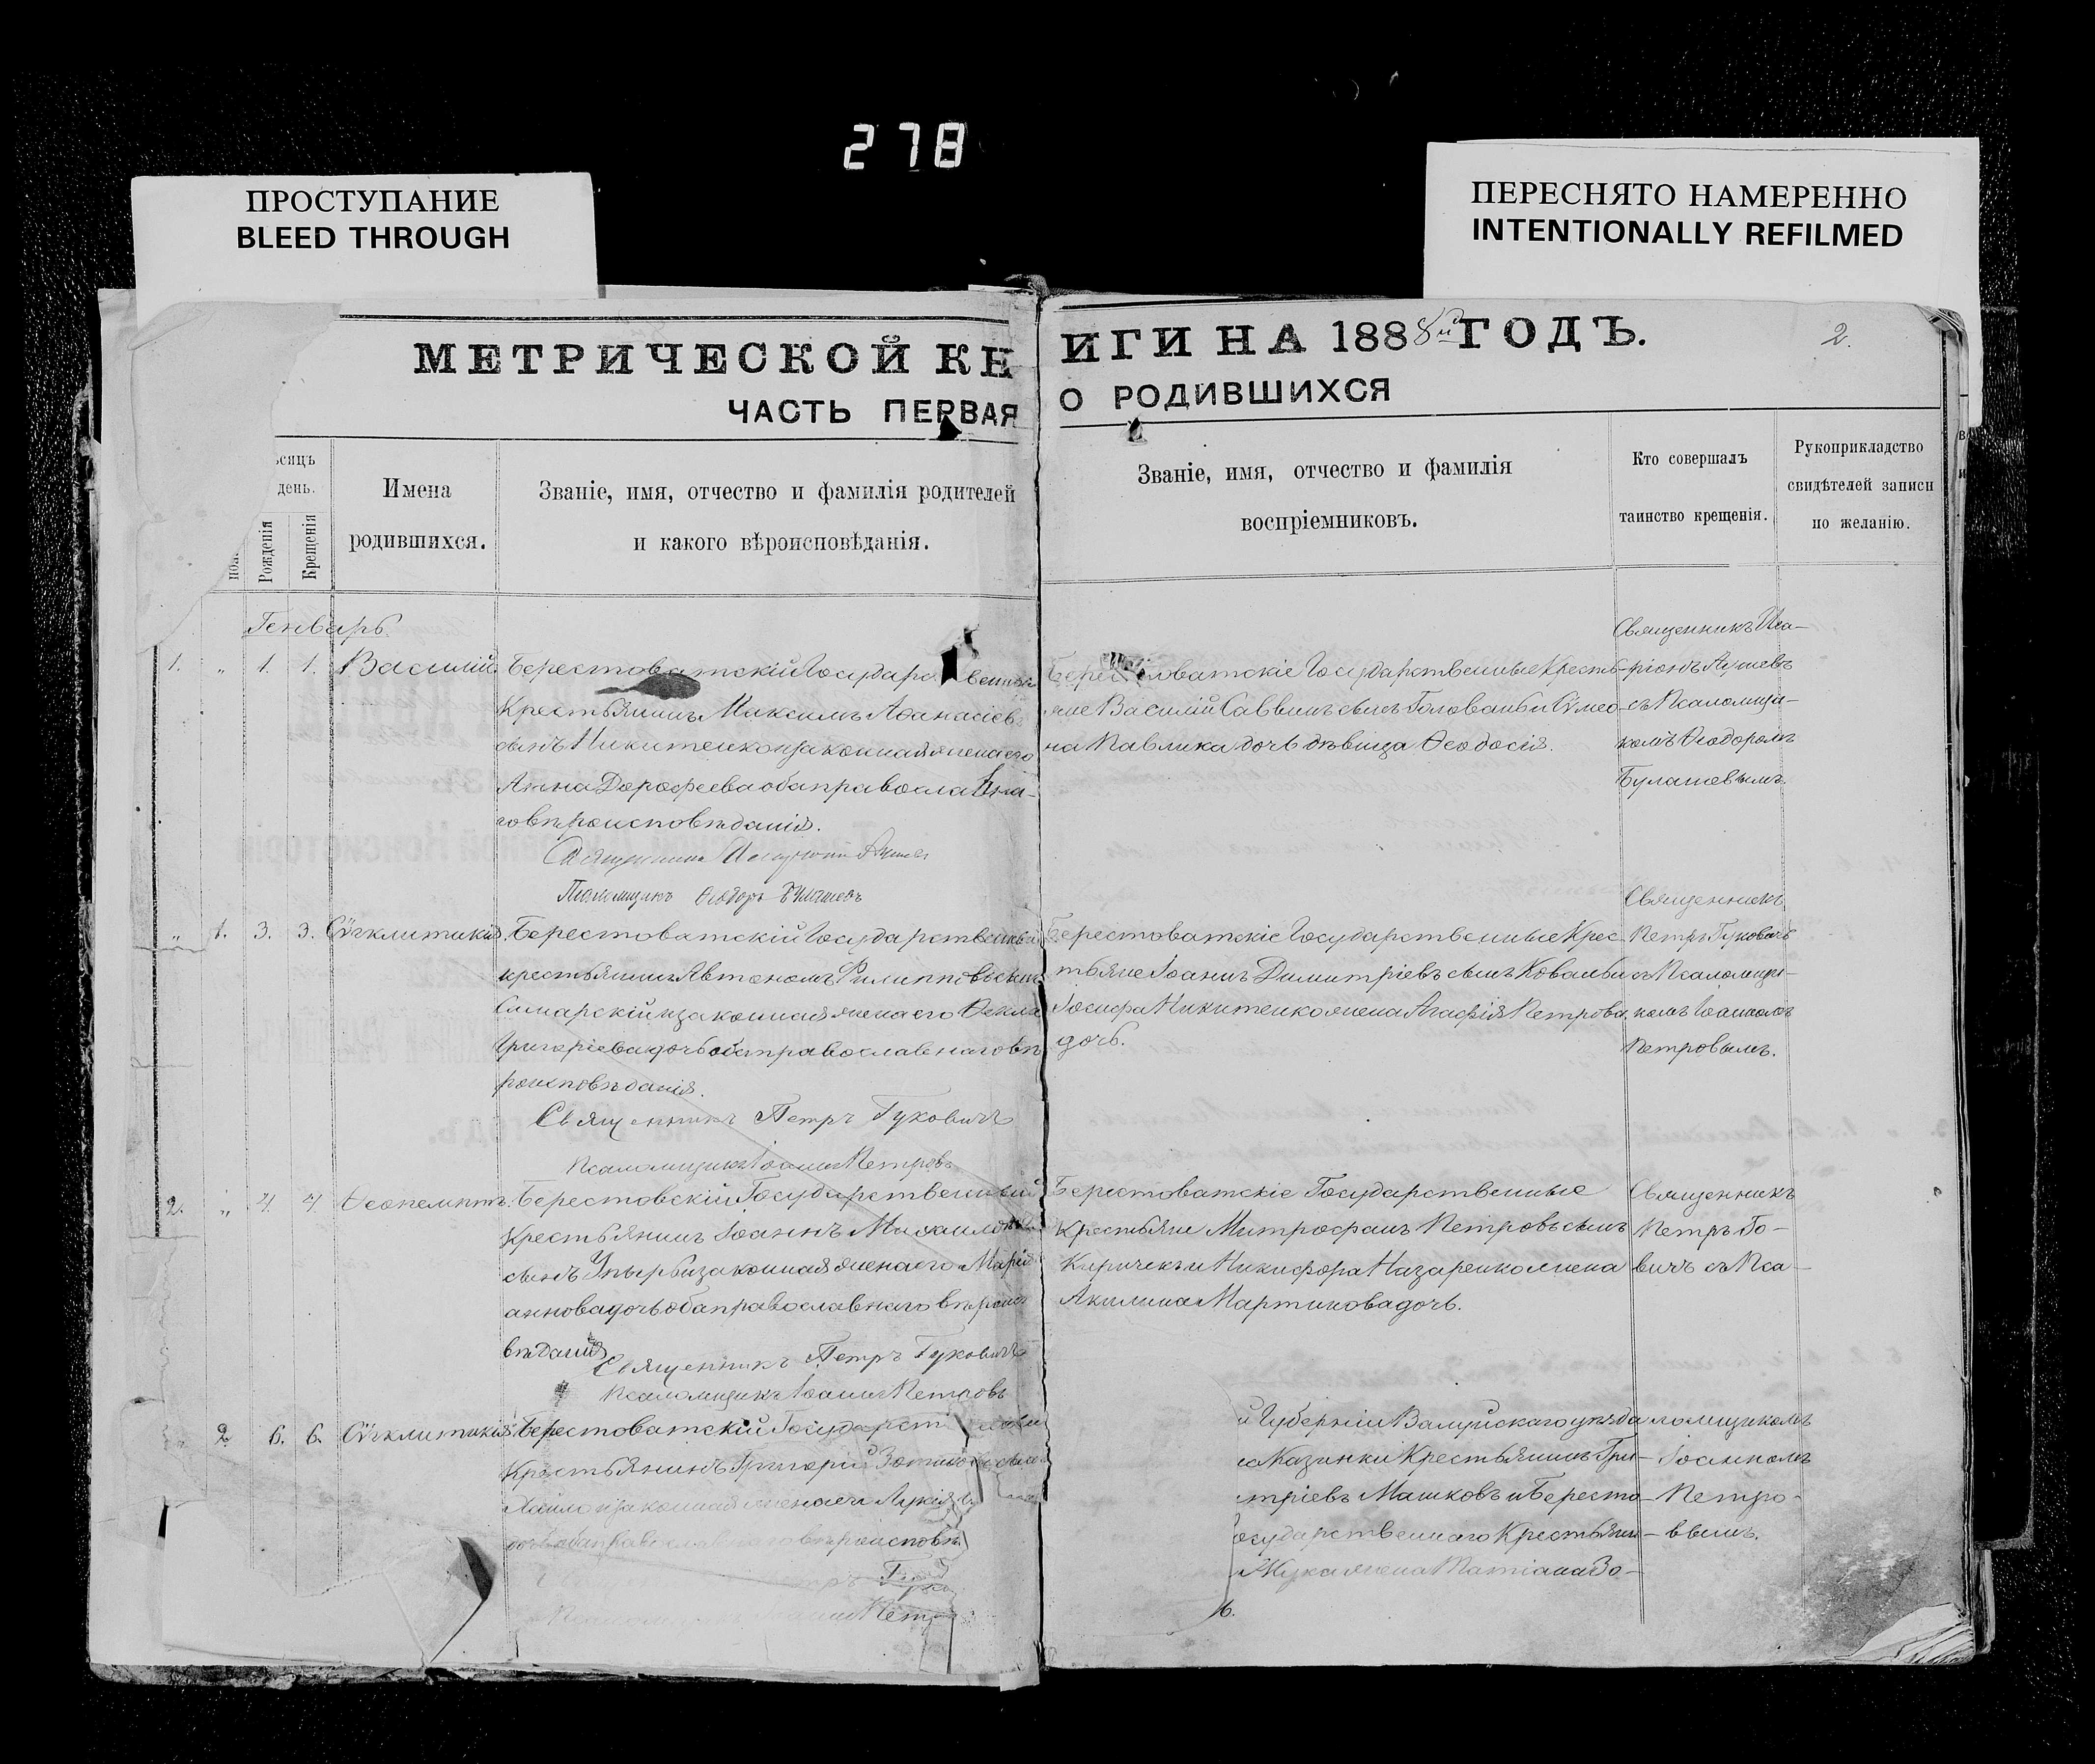 278
ПРОСТУПАНИЕ
BLEED THROUGH
ПЕРЕСНЯТО НАМЕРЕННО
INTENTIONALLY REFILMED
МЕТРИЧЕСКОЙ КН
ЧАСТЬ ПЕРВАЯ
сяцъ
день.
Рожденія
Крещенія
Имена
родившихся.
Званіе, имя, отчество и фамилія родителей
и какого вѣроисповѣданія.
Генварь.
1. „ 1. 1. Василій. Берестоватскій Государ венный
Крестьянинъ Максимъ Аѳанасіевъ
сынъ Никитенко и законная жена его
Анна Дороѳеева оба православна-
го вѣроисповѣданія.
Псаломщикъ Ѳеодоръ Булашевъ
„ 1. 3. 3. Сѵгклитикія. Берестоватскій Государственный
крестьянинъ Автономъ Филипповъ сынъ
Самарскій и законная жена его Ѳекла
Григоріева дочь оба православнаго вѣ
роисповѣданія.
Священникъ Петръ Гуковичъ
Псаломщикъ Іоаннъ Петровъ
2. „ 4. 4. Ѳеопемптъ. Берестовскій Государственный
Крестьянинъ Іоаннъ Михаиловъ
сынъ Упырь и законная жена его Марія
анновa дочь оба православнаго вѣроиспо
вѣданія
Священникъ Петръ Гуковичъ
Псаломщикъ Іоаннъ Петровъ
2 6. 6. Сѵгклитикія Берестоватскій Государст
Крестьянинъ Григорій
и законная жена его Лукія
дочь оба православнаго вѣроисповѣ
ИГИ НА 1888й ГОДЪ.
2.
О РОДИВШИХСЯ
Званіе, имя, отчество и фамилія
воспріемниковъ.
Кто совершалъ
таинство крещенія.
Рукоприкладство
свидѣтелей записи
по желанію.
Берестоватскіе Государственные Кресть-
яне Василій Саввинъ сынъ Головань и Сѵмео-
на Павлика дочь дѣвица Ѳеодосія.
Священникъ
съ Псаломщи-
комъ Ѳеодоромъ
Булашевымъ.
Берестоватскіе Государственные Крес
тьяне Іоаннъ Димитріевъ сынъ Коваль и
Іосифа Никитенко жена Агафія Петрова
дочь.
Священникъ
Петръ Гуковичъ
съ Псаломщи-
комъ Іоанномъ
Петровымъ.
Берестоватскіе Государственные
Крестьяне Митрофанъ Петровъ сынъ
Киричекъ и Никифора Назаренко жена
Акилина Мартинова дочь.
Священникъ
Петръ Го-
вичъ съ Пса-
й Губерніи Валуйскаго уѣзда
Казинки Крестьянинъ Гри-
тріевъ Машковъ и Бересто-
осударственнаго Крестьяни-
Жука жена Татіана Зо-
ь.
ломщикомъ
Іоанномъ
Петро-
вымъ.